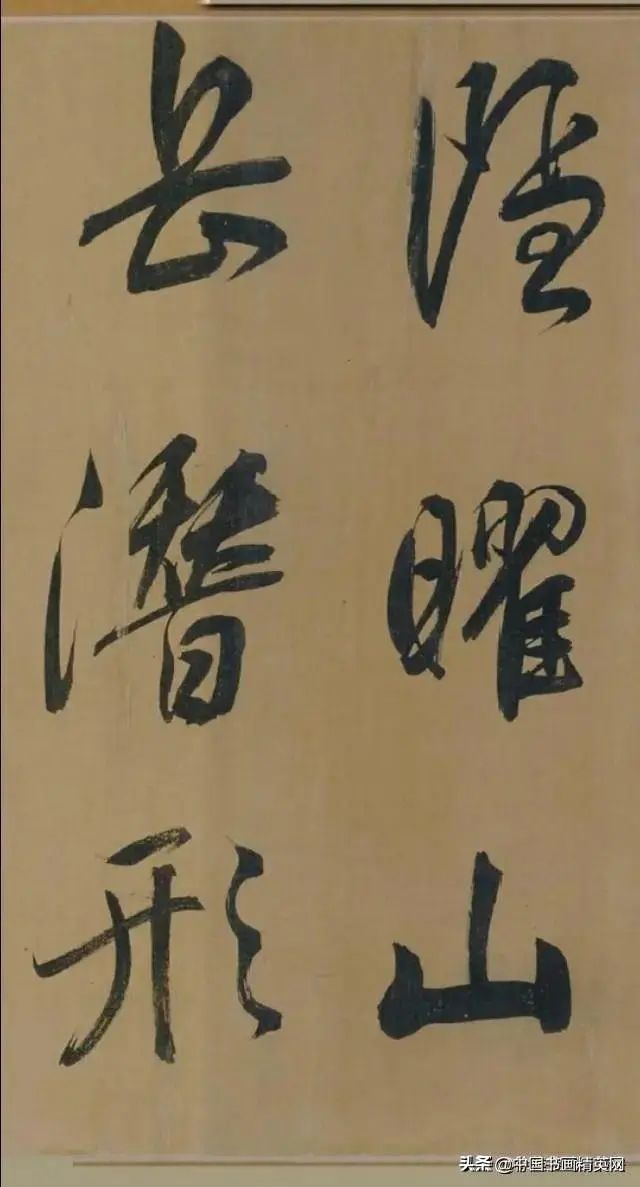 隱曜山
岳潜形
头条 @中国书画精英网